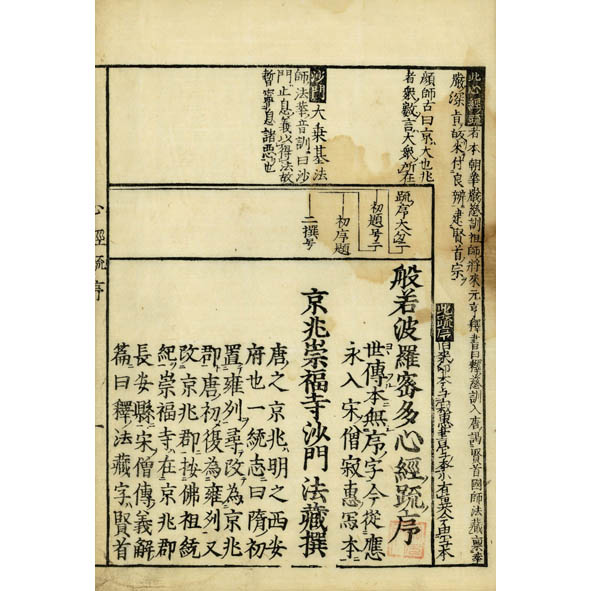 此心經疏者本朝華嚴審訓祖師將來元亨釋書曰釋審訓入唐謁賢首國師法藏稟華
嚴深旨故來付良辨建賢首宗
顔師古曰京大也兆
者衆數言大衆所在
沙門大乗基法
師法華音訓曰沙
門止息義以得法故
暫寧息諸惡也
疏序大分
初題号
初序題
二撰号
此疏序
般若波羅密多心經疏序
世傳本無序字今從應
永入宋僧寂惠寫本
京兆崇福寺沙門法藏撰
唐之京兆明之西安
府也一統志曰隋初
置雍列尋改為京兆
郡唐初復為雍列又
改京兆郡按佛祖統
紀崇福寺在京兆郡
長安縣宋僧傳義解
篇曰釋法藏字賢首
心經疏序
一